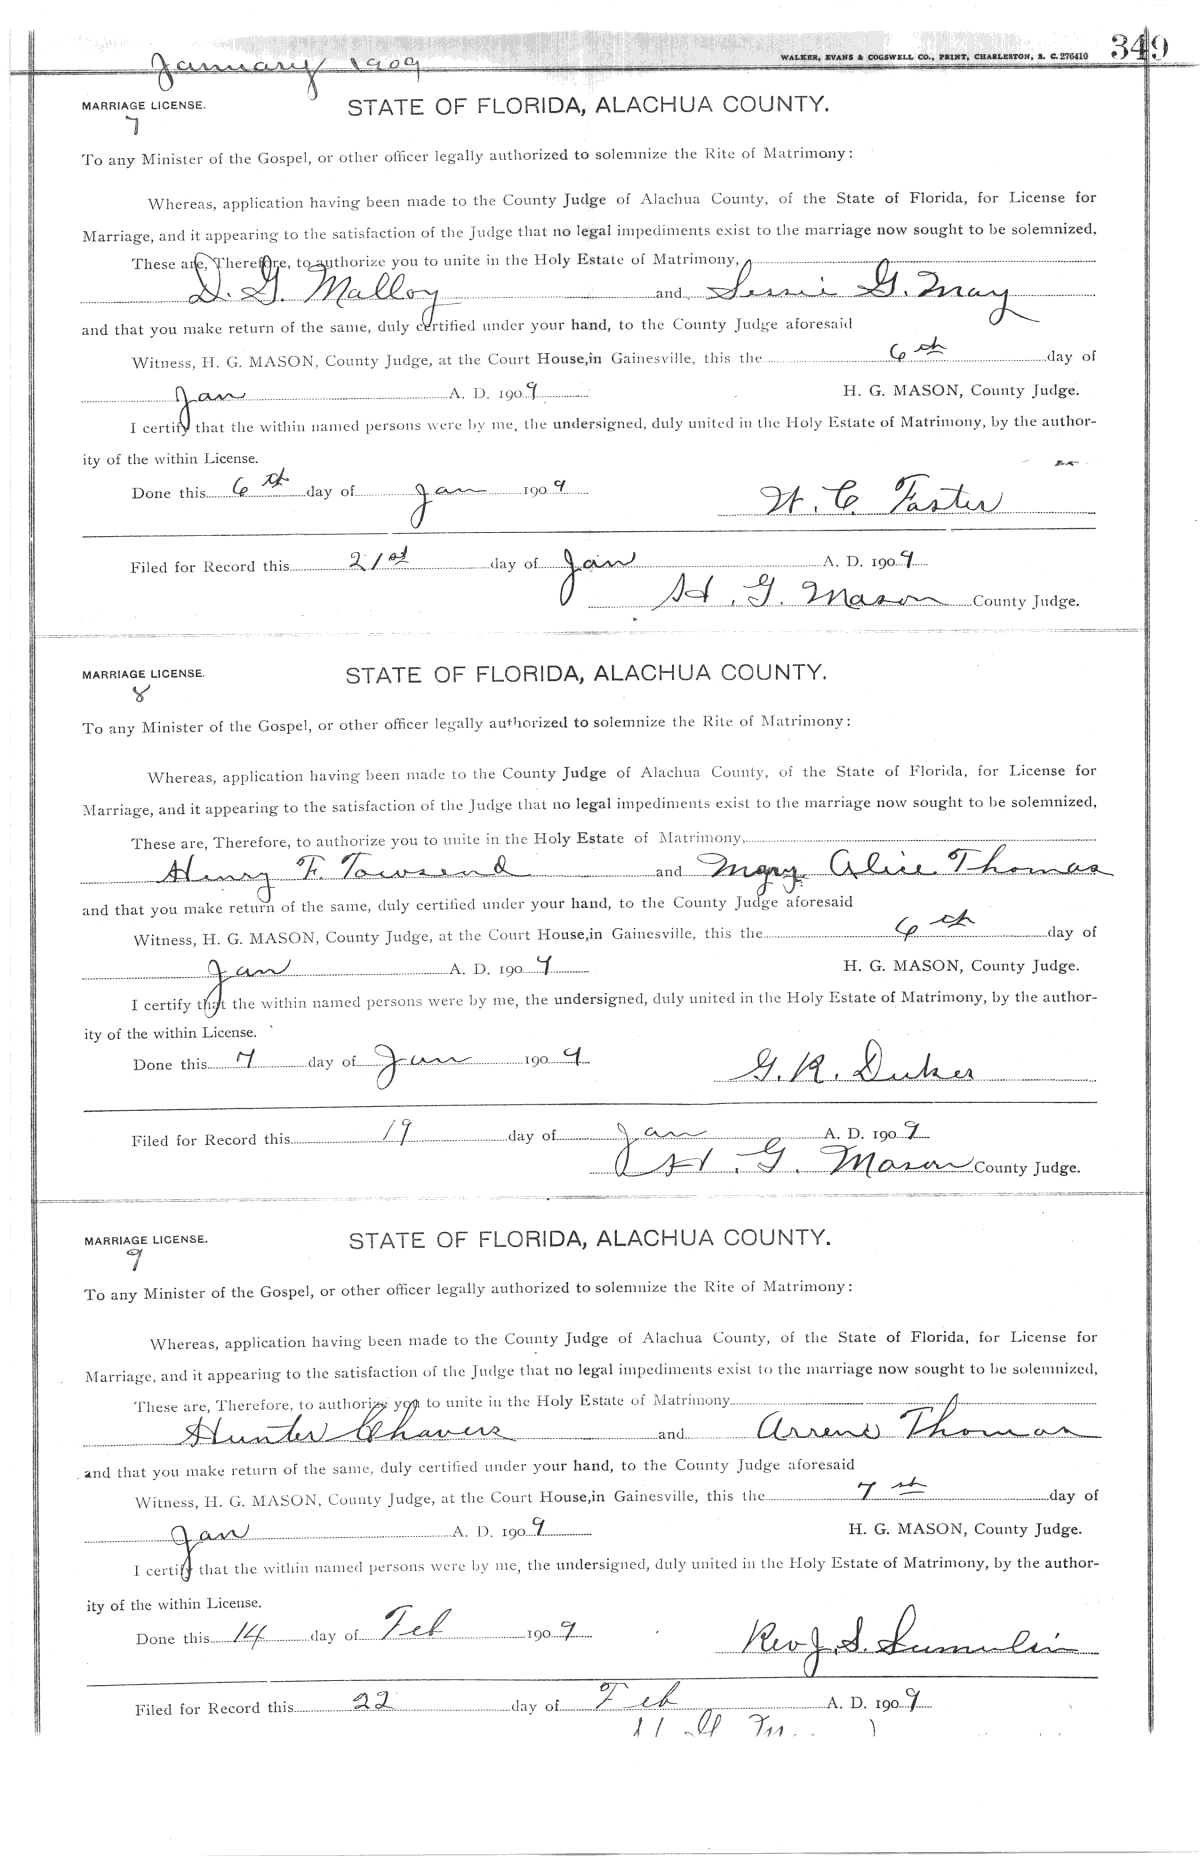 January 1909
WALKER, EVANS & COGSWELL CO., PRINT, CHARLESTON, S. C. 276410
349
MARRIAGE LICENSE.
STATE OF FLORIDA, ALACHUA COUNTY.
7
To any Minister of the Gospel, or other officer legally authorized to solemnize the Rite of Matrimony:
Whereas, application having been made to the County Judge of Alachua County, of the State of Florida, for License for
Marriage, and it appearing to the satisfaction of the Judge that no legal impediments exist to the marriage now sought to be solemnized,
These are, Therefore, to authorize you to unite in the Holy Estate of Matrimony,
D. G. Malloy and G. May
and that you make return of the same, duly certified under your hand, to the County Judge aforesaid
Witness, H. G. MASON, County Judge, at the Court House, in Gainesville, this the 6th day of
Jan A. D. 1909 H. G. MASON, County Judge.
I certify that the within named persons were by me, the undersigned, duly united in the Holy Estate of Matrimony, by the author-
ity of the within License.
Done this 6th day of Jan 1909 W. C. Faster
Filed for Record this 21st day of Jan A. D. 1909
H. G. Mason County Judge.
MARRIAGE LICENSE.
STATE OF FLORIDA, ALACHUA COUNTY.
8
To any Minister of the Gospel, or other officer legally authorized to solemnize the Rite of Matrimony:
Whereas, application having been made to the County Judge of Alachua County, of the State of Florida, for License for
Marriage, and it appearing to the satisfaction of the Judge that no legal impediments exist to the marriage now sought to be solemnized,
These are, Therefore, to authorize you to unite in the Holy Estate of Matrimony,
Henry F. Towsend and Mary Alice Thomas
and that you make return of the same, duly certified under your hand, to the County Judge aforesaid
Witness, H. G. MASON, County Judge, at the Court House, in Gainesville, this the 6th day of
Jan A. D. 1909 H. G. MASON, County Judge.
I certify that the within named persons were by me, the undersigned, duly united in the Holy Estate of Matrimony, by the author-
ity of the within License.
Done this 7 day of Jan 1909 G. R. Dukes
Filed for Record this 19 day of Jan A. D. 1909
H. G. Mason County Judge.
MARRIAGE LICENSE.
STATE OF FLORIDA, ALACHUA COUNTY.
9
To any Minister of the Gospel, or other officer legally authorized to solemnize the Rite of Matrimony:
Whereas, application having been made to the County Judge of Alachua County, of the State of Florida, for License for
Marriage, and it appearing to the satisfaction of the Judge that no legal impediments exist to the marriage now sought to be solemnized,
These are, Therefore, to authorize you to unite in the Holy Estate of Matrimony
Hunter Chavers and Arrene Thomas
and that you make return of the same, duly certified under your hand, to the County Judge aforesaid
Witness, H. G. MASON, County Judge, at the Court House, in Gainesville, this the 7st day of
Jan A. D. 1909 H. G. MASON, County Judge.
I certify that the within named persons were by me, the undersigned, duly united in the Holy Estate of Matrimony, by the author-
ity of the within License.
Done this 14 day of Feb 1909 Rev J. S.
Filed for Record this 22 day of Feb A. D. 1909